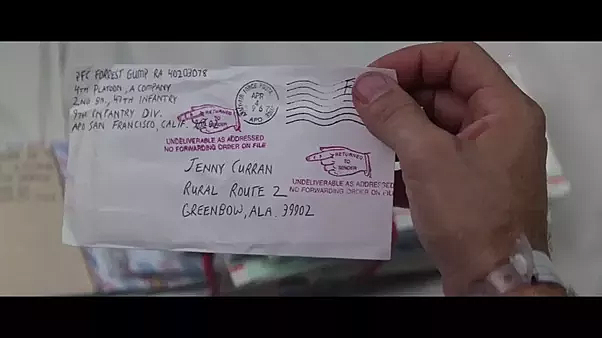 PFC FORREST GUMP RA 40203078
4TH PLATOON, A COMPANY
2ND BN., 47TH INFANTRY
9TH INFANTRY DIV.
APO SAN FRANCISCO, CALIF.
RETURNED
TO
SENDER
UNDELIVERABLE AS ADDRESSED
NO FORWARDING ORDER ON FILE
APR
4
APO
JENNY CURRAN
RURAL ROUTE 2
GREENBOW, ALA. 39902
RETURNED
TO
SENDER
UNDELIVERABLE AS ADDRESSED
NO FORWARDING ORDER ON FILE